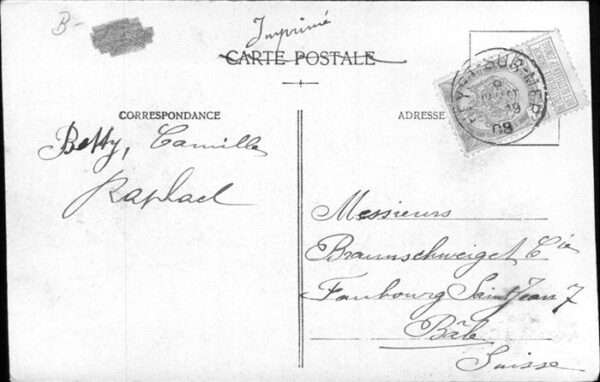 B-
Imprimé
CARTE POSTALE
SUR-MER
8
19
08
CORRESPONDANCE
ADRESSE
Betty, Camille
Raphael
Messieurs
Braunschweig et Cie
Faubourg Saint Jean 7
Bâle
Suisse